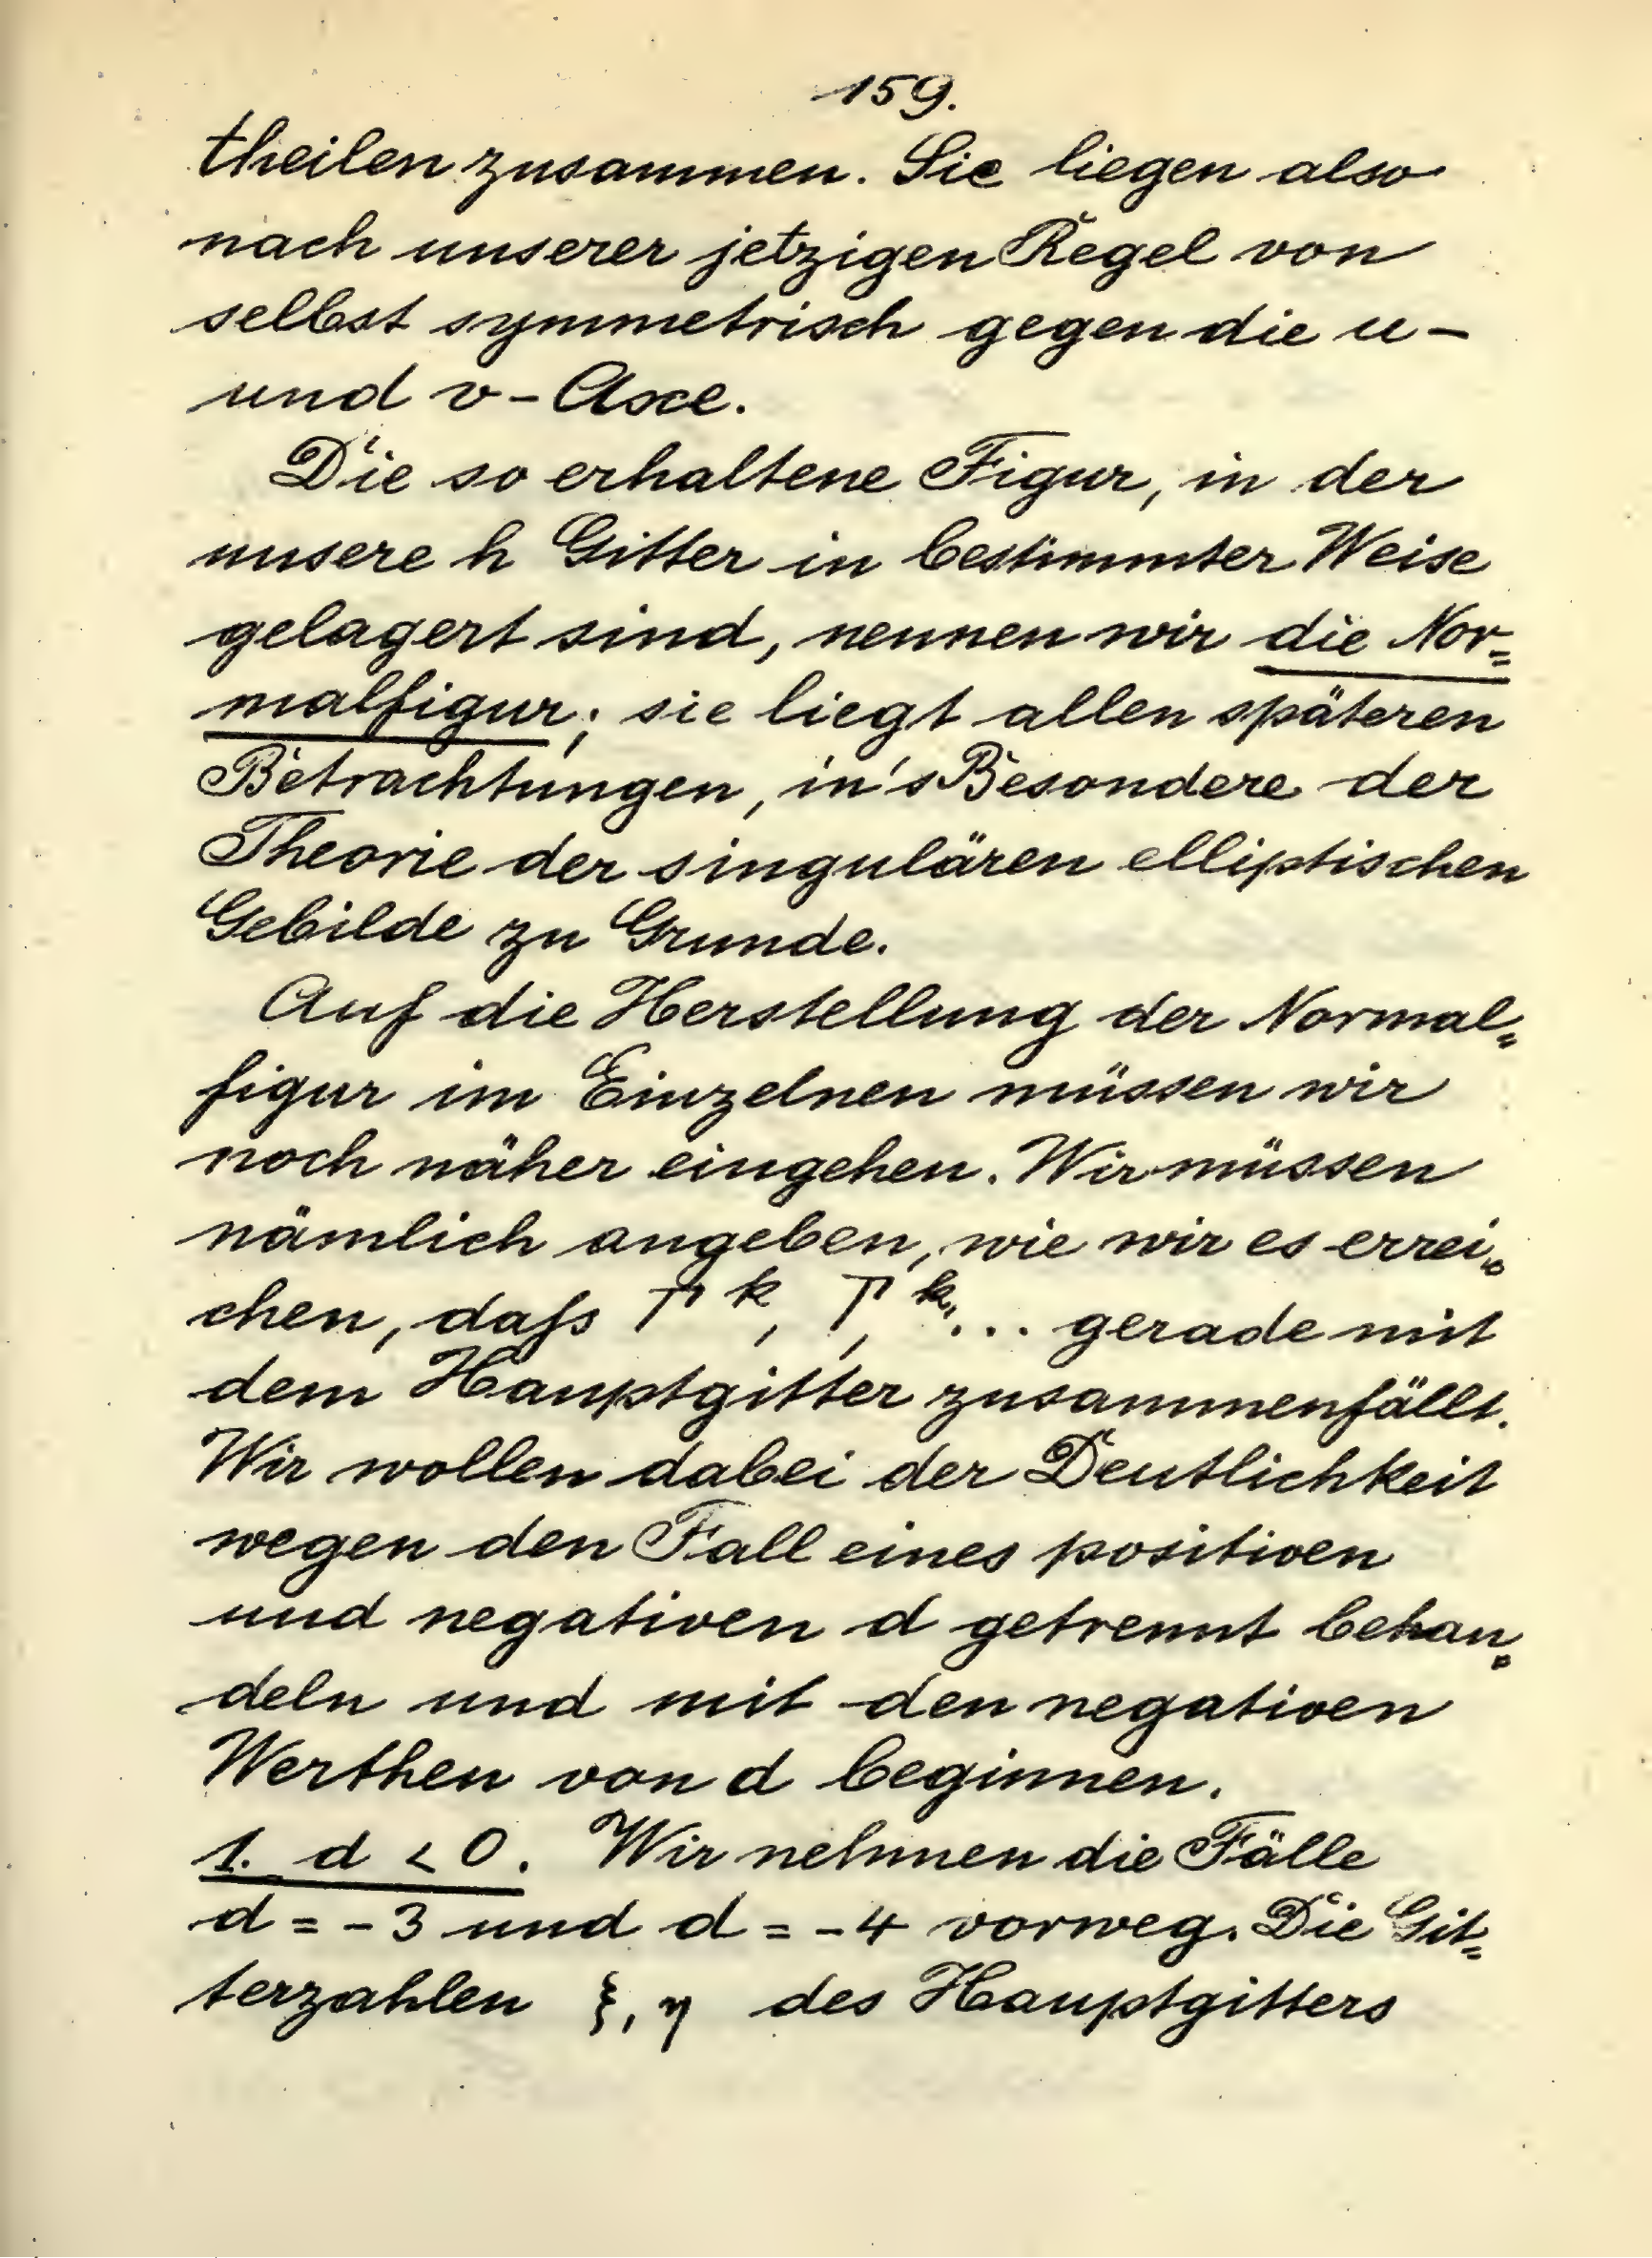 159.
theilen zusammen. Sie liegen also
nach unserer jetzigen Regel von
selbst symmetrisch gegen die u-
und v-Axe.
Die so erhaltene Figur, in der
unsere h Gitter in bestimmter Weise
gelagert sind, nennen wir die Nor=
malfigur; sie liegt allen späteren
Betrachtungen, in's Besondere der
Theorie der singulären elliptischen
Gebilde zu Grunde.
Auf die Herstellung der Normal=
figur im Einzelnen müssen wir
noch näher eingehen. Wir müssen
nämlich angeben, wie wir es errei=
chen, daſs Γ^k, Γ,^k,, ... gerade mit
dem Hauptgitter zusammenfällt.
Wir wollen dabei der Deutlichkeit
wegen den Fall eines positiven
und negativen d getrennt behan=
deln und mit den negativen
Werthen von d beginnen.
1. d < 0. Wir nehmen die Fälle
d = -3 und d = -4 vorweg. Die Git=
terzahlen ξ, η des Hauptgitters